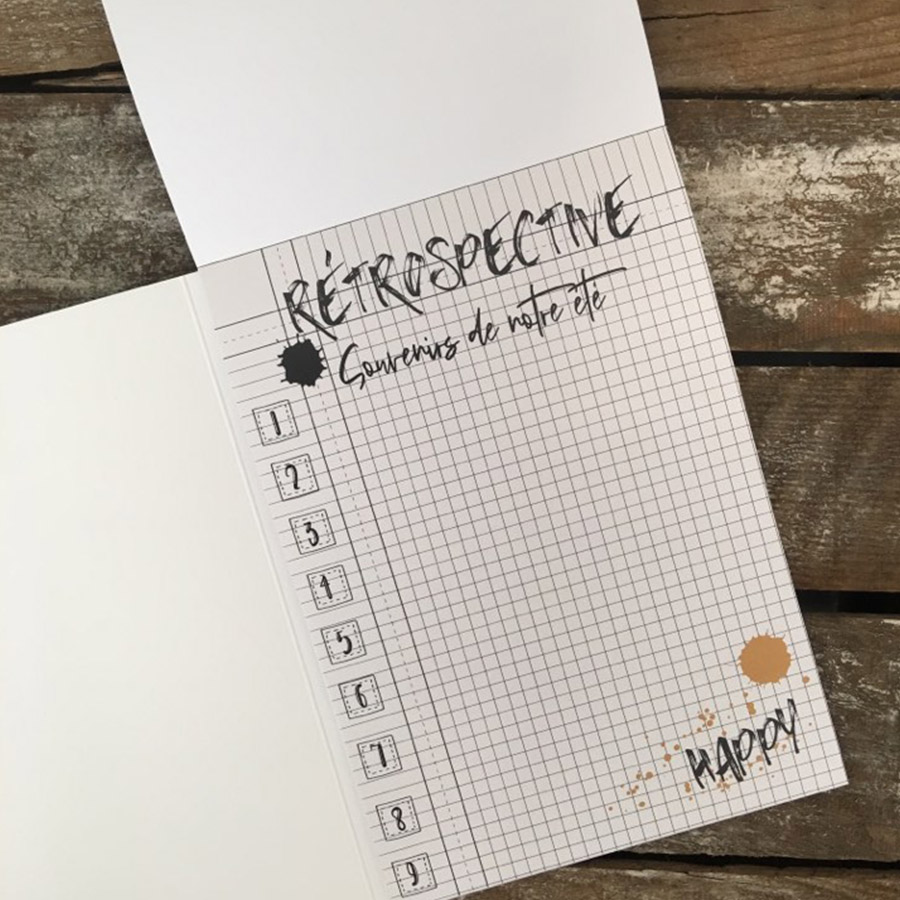 RÉTROSPECTIVE
Souvenirs de notre été
1
2
3
4
5
6
7
8
9
HAPPY